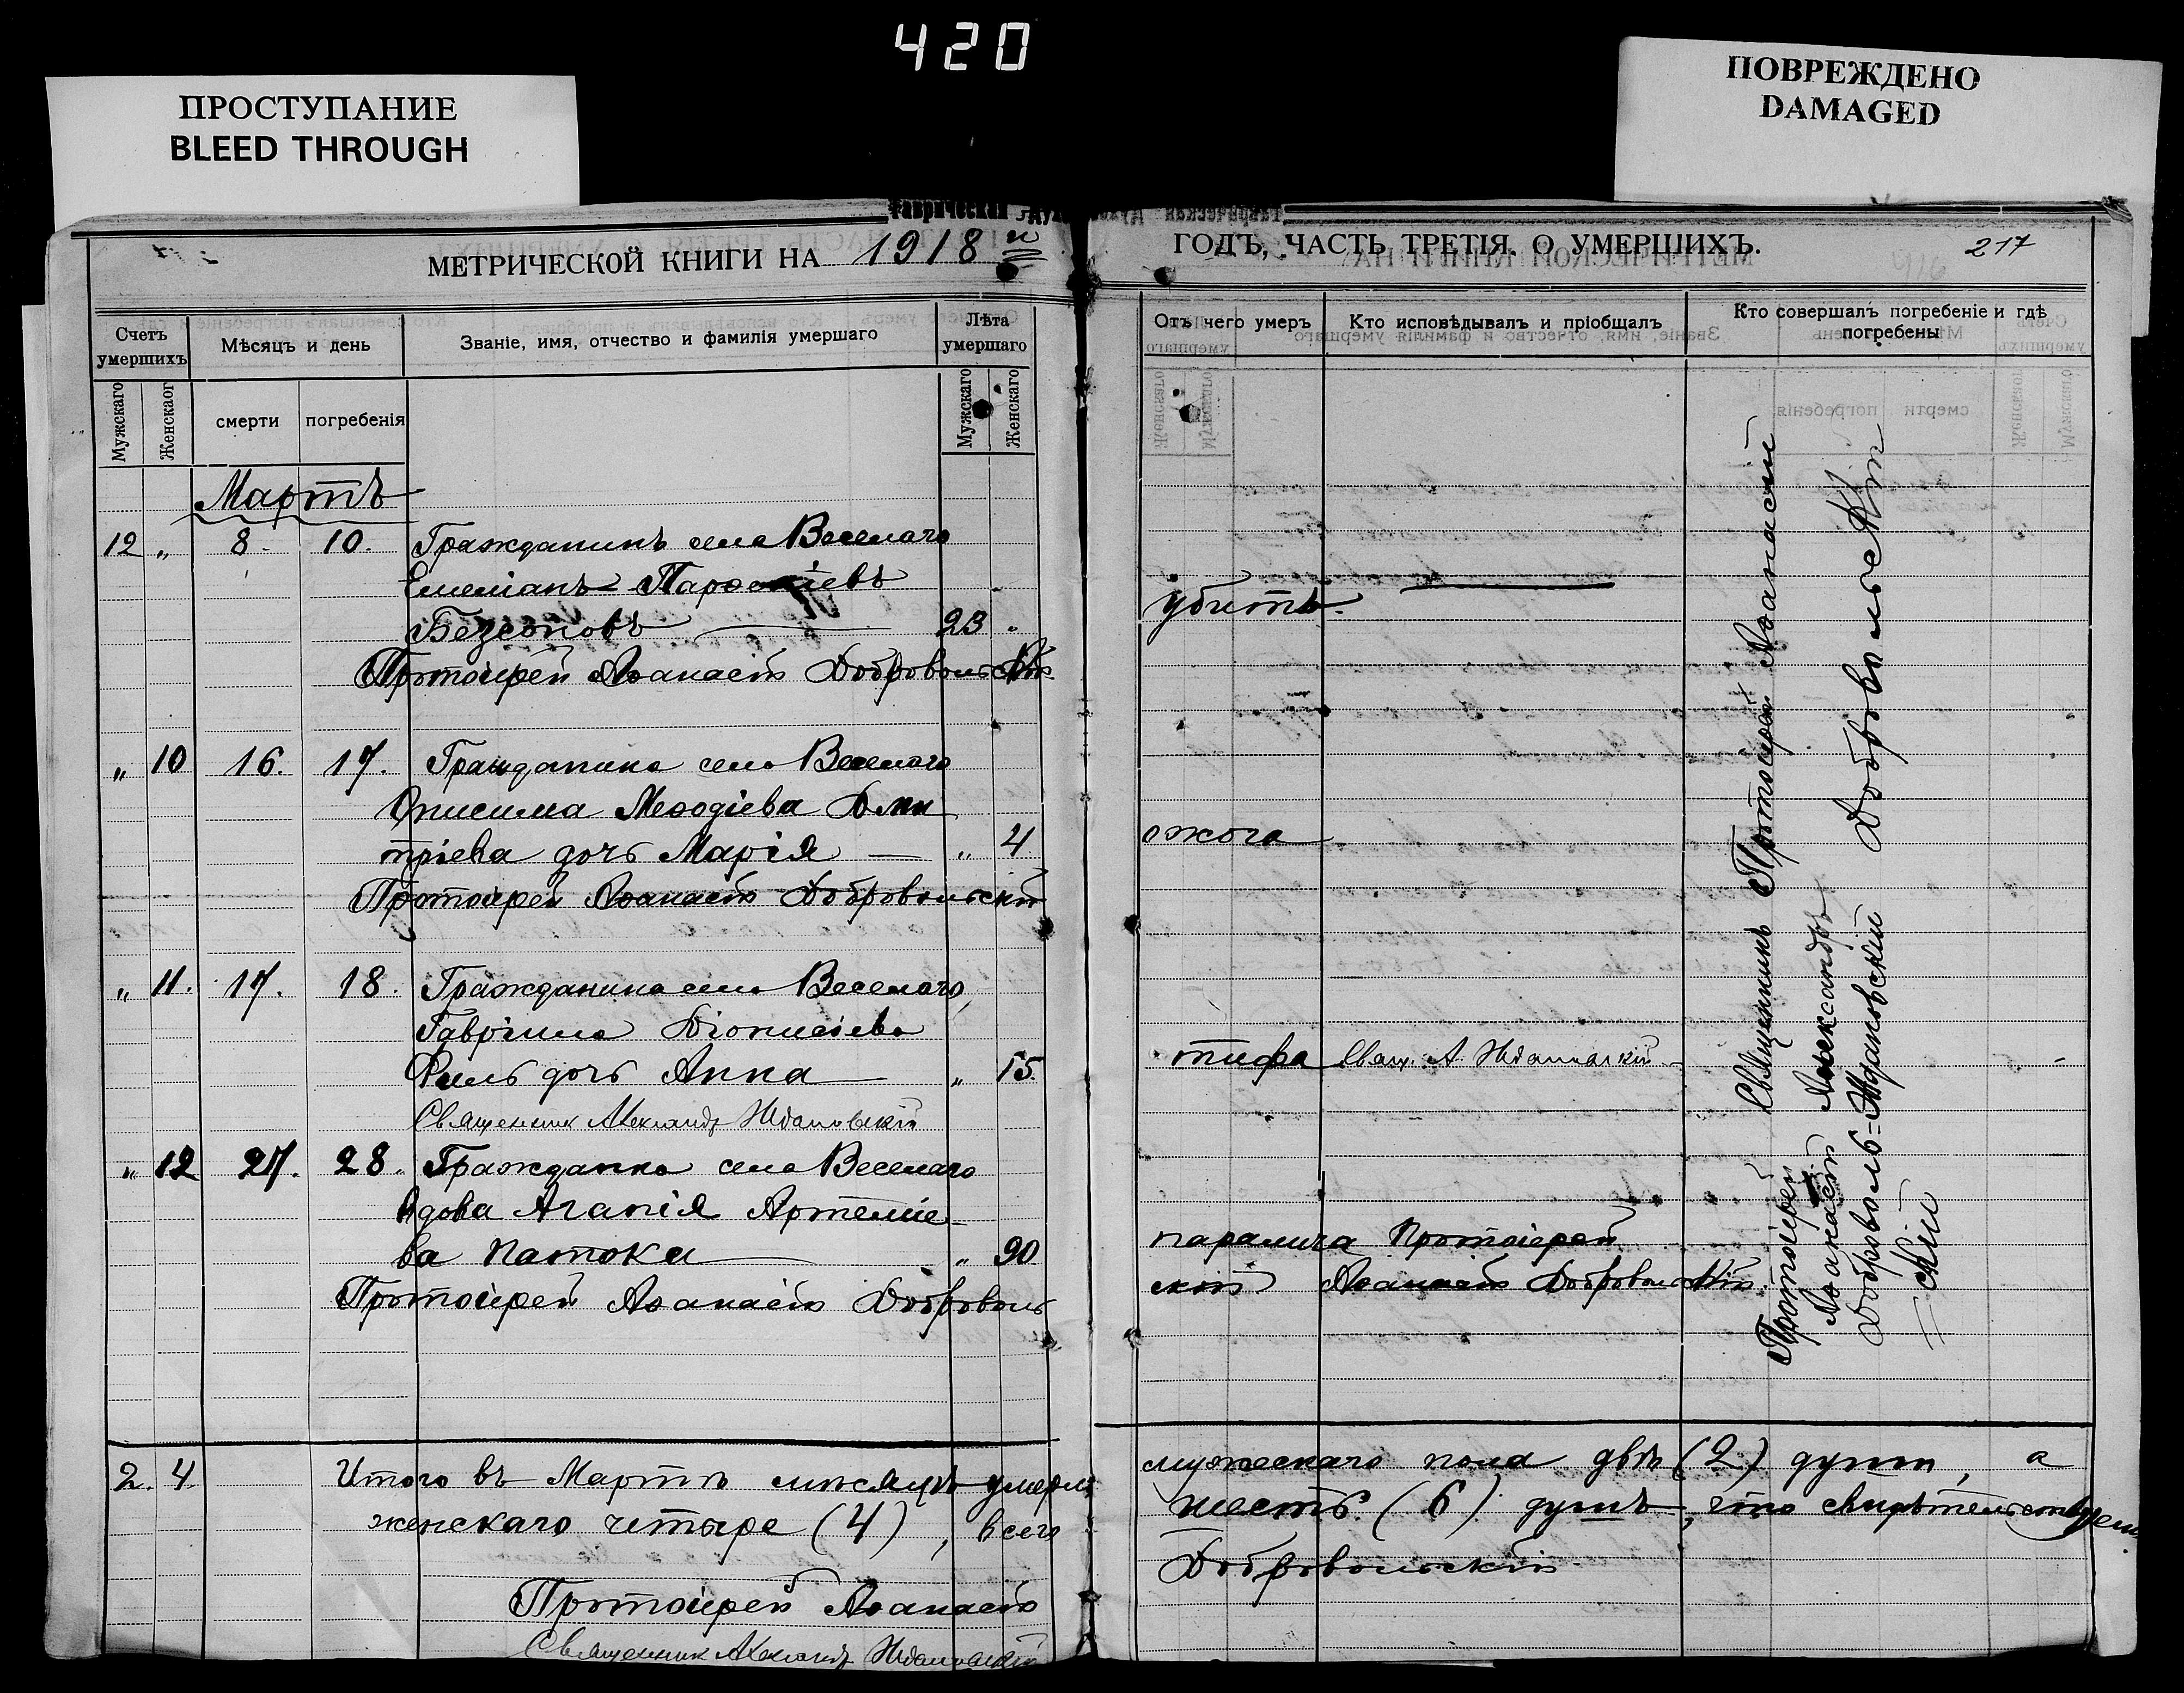 420
ПРОСТУПАНИЕ
BLEED THROUGH
ПОВРЕЖДЕНО
DAMAGED
МЕТРИЧЕСКОЙ КНИГИ НА 1918 й
Счетъ умершихъ
Мѣсяцъ и день
Званіе, имя, отчество и фамилія умершаго
Лѣта умершаго
Мужскаго
Женскаог
смерти
погребенія
Мужскаго
Женскаго
Мартъ
12 „ 8. 10. Гражданинъ села Веселаго
Емеліанъ Парѳеніевъ
Безсоновъ — 23 „
Протоиерей Аѳанасій Добровольскій
„ 10 16. 17. Гражданина села Веселаго
Онисима Меѳодіева Дми
тріева дочь Марія — „ 4
Протоиерей Аѳанасій Добровольскій
„ 11. 17. 18. Гражданина села Веселаго,
Гавріила Діонисіева
дочь Анна — „ 15.
Священник Александр Ждановскій
„ 12 27. 28. Гражданка села Веселаго
вдова Агапія Артеміе
ва Патока — „ 90
Протоиерей Аѳанасій Доброволь
2. 4. Итого въ Мартѣ мѣсяцѣ умерло
женскаго четыре (4), всего
Протоиерей Аѳанасій
Священник Александр Ждановскій
ГОДЪ, ЧАСТЬ ТРЕТІЯ. О УМЕРШИХЪ. 217
Отъ чего умеръ
Кто исповѣдывалъ и пріобщалъ
Кто совершалъ погребеніе и гдѣ погребены
убитъ. —
ожога
тифа Свящ. А. Ждановскій
паралича Протоіерей
скій Аѳанасій Добровольскій.
Протоиерей Аѳанасій
Добровольскій
Священникъ
Александръ
Ждановскій
Протоіерей
Аѳанасій
Доброволь=
=скій
мужескаго пола двѣ (2) души, а
шесть (6) душъ, что свидѣтельствуемъ
Добровольскій